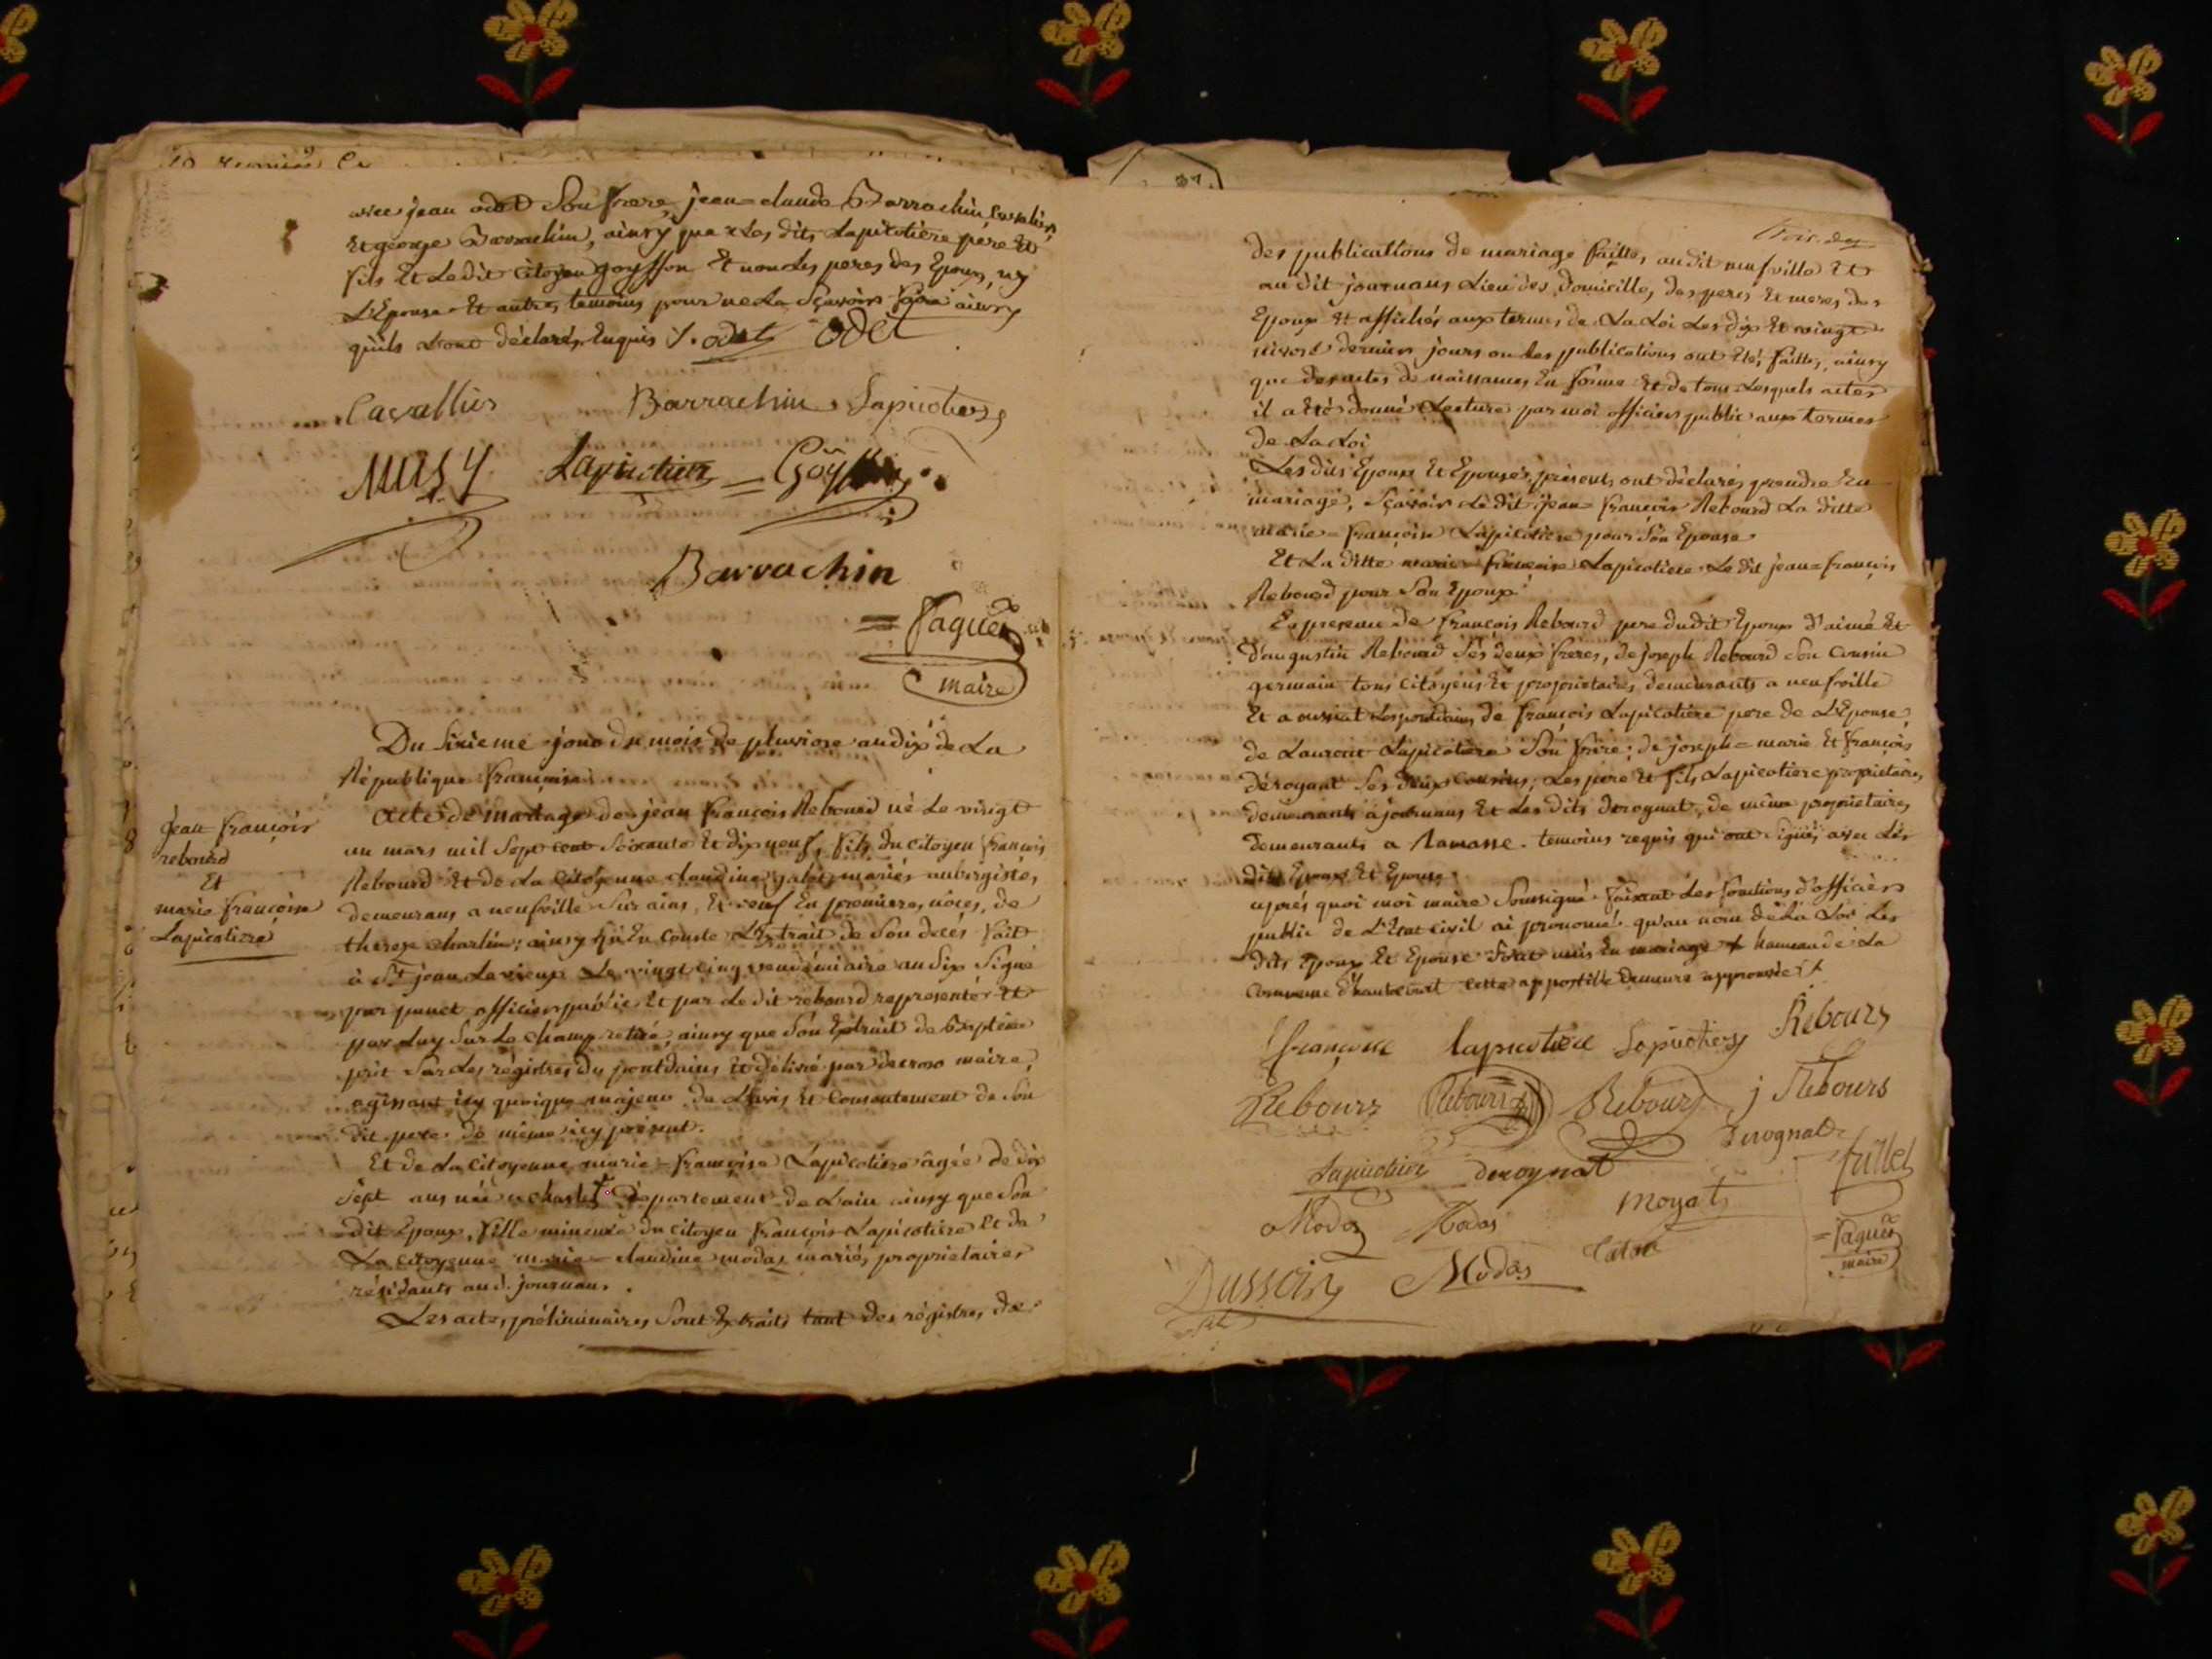 avec jean odet Son frere, jean=claude Barrachin, Cavalier,
Et george Barrachin, ainsy que Les dits Lapicotière père Et
fils Et Ledit Citoyen goyffon Et non Les peres des Epoux, ny
L'Epouse Et autres temoins pour ne La Sçavoir faire ainsy
qu'ils L'ont déclaré, Enquis /. odet odet
Cavallier Barrachin Lapicotiere
MAS Y Lapicotiere = Goyffon
Barrachin
= Paguet
maire
Du Sixieme jour du mois de pluviose an dix de La
République française
Jean françois
rebourd
Et
marie françoise
Lapicotiere
Acte de mariage de jean françois Rebourd né Le vingt
un mars mil Sept cent Soixante Et dix neuf, fils du Citoyen françois
Rebourd Et de La Citoyenne claudine mariés aubergistes,
demeurans a neufville Sur ains, Et veuf En premieres nôces, de
therese charlin; ainsy qu'En conste L'Extrait de Son décès fait
à St jean Le vieux Le vingt cinq vendémiaire an dix Signé
par officier public Et par Le dit rebourd representé Et
par Luy Sur Le champ retiré, ainsy que Son Extrait de Baptême
prit Sur Les régistres du pontdains Et délivré par maire,
agissant icy quoique majeur de L'avis Et Consentement de Son
dit pere de même icy présent.
Et de La Citoyenne marie=françoise Lapicotiere âgée de dix
Sept ans née a département de L'ain ainsy que Son
dit Epoux, fille mineure du Citoyen françois Lapicotière Et de
La Citoyenne marie=claudine modas mariés, proprietaires
résidants au d. journans.
Les actes préliminaires Sont Extraits tant des régistres de
des publications de mariage faittes, au dit neufville Et
au dit journans Lieu des Domicilles, des peres Et meres des
Epoux Et affichés aux termes de La Loi Les dix Et vingt
nivose derniers jours ou Les publications ont Eté faittes, ainsy
que des actes de naissances En forme Et de tous Lesquels actes
il a Eté donné Lecture par moi officier public aux termes
de La Loi
Les dits Epoux Et Epouse, présents ont déclarés prendre En
mariage, Sçavoir Le dit jean=françois Rebourd La ditte
marie=françoise Lapicotiere pour Son Epouse
Et La ditte marie=françoise Lapicotiere Le dit jean=françois
Rebourd pour Son Epoux
En presence de françois Rebourd pere dudit Epoux d'aimé Et
d'augustin Rebourd Ses deux freres, de joseph Rebourd Son Cousin
germain tous Citoyens Et proprietaires, demeurants a neufville
Et de françois Lapicotiere pere de L'Epouse,
de Laurent Lapicotiere Son frère; de joseph=marie Et françois
dérognat Ses deux Cousins; Les père Et fils Lapicotiere proprietaires,
demeurants à journans Et Les dits derognat, de même proprietaires,
Demeurants a Ramasse. temoins requis qui ont Signés, avec Les
dits Epoux Et Epouse.
aprés quoi moi maire Soussigné faisant Les fonctions d'officier
public de L'Etat Civil ai prononcé qu'au nom de La Loi Les
dits Epoux Et Epouse Sont unis En mariage + hameau de La
Commune d'hautecourt cette appostille Demeure approuvée /.
françoise lapicotiere Lapicotiere Rebourd
Rebourd Rebourd Rebourd j Rebours
Derognat
Lapicotiere derognat
Modas Modas Moyat
= Paguet
maire
Modas